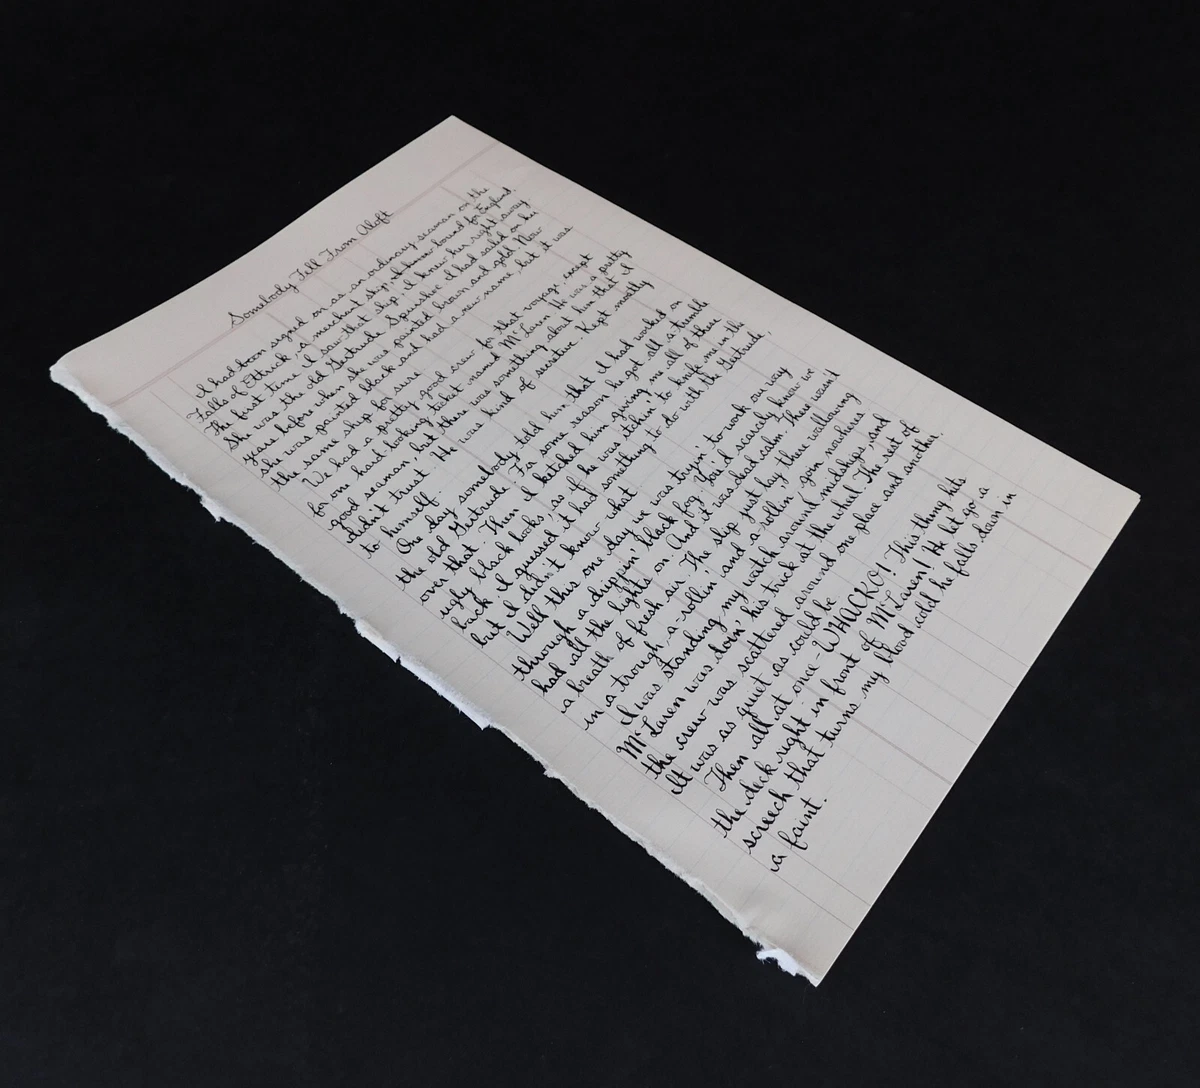 Somebody Fell From Aloft
I had been signed on as an ordinary seaman on the
Falls of Ettrick, a merchant ship, bound for England.
The first time I saw that ship I knew her right away
She was the old Gertrude Spurshoe. I had sailed on her
years before when she was painted brown and gold. Now
she was painted black and had a new name, but it was
the same ship for sure.
We had a pretty good crew for that voyage, except
for one hard looking ticket named McLaren. He was a pretty
good seaman but there was something about him that I
didn't trust. He was kind of secretive. Kept mostly
to himself.
One day somebody told him that I had worked on
the old Gertrude. For some season he got all a tremble
over that. Then I ketched him giving me all of these
ugly black looks, as if he was itchen to knife me in the
back. I guised it had something to do with the Gertrude,
but I didn't know what.
Well this one day we was tryin' to work our way
through a drippin' black fog. You'd scarcely know we
had all the lights on. And it was dead calm. There wasn't
a breath of fresh air. The ship just lay there wallowing
in a trough, a-rollin and a-rollin', goin nowhere.
I was standing my watch around midships, and
McLaren was doin' his trick at the wheel. The rest of
the crew was scattered around one place and another
It was as quiet as could be
Then all at once - WHACKO! This thing hits
the deck right in front of McLaren! He let go a
screech that turns my blood cold he falls down in
a faint.